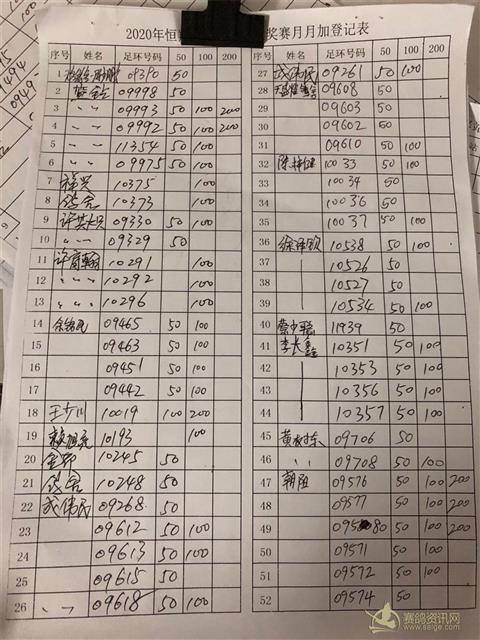 2020年恒 奖赛月月加登记表
序号 姓名 足环号码 50 100 200
1 09390 50
2 蓝钻 09998 50
3 〃 09993 50 100 200
4 〃 09992 50 100 200
5 〃 11354 50 100
6 〃 09975 50 100
7 祥兴 10375 100
8 鸽舍 10373 100
9 09330 50 100
10 〃 09329 50
11 10291 100
12 〃 10292 100
13 〃 10296 100
14 09465 50 100
15 09463 50 100
16 09451 50 100
17 09442 50 100
18 10019 100 200
19 10193 100
20 10245 50
21 鸽舍 10248 50
22 伟民 09268 50
23 09612 50 100
24 09613 50 100
25 09615 50
26 〃 09618 50 100
序号 姓名 足环号码 50 100 200
27 伟民 09261 50 100
28 09608 50
29 09603 50
30 09602 50
31 09610 50 100
32 陈 10033 50 100
33 10034 50
34 10036 50
35 10037 50 100
36 徐泽钦 10538 50 100
37 10526 50
38 10527 50
39 10534 50 100
40 11939 50
41 李长鑫 10351 50 100
42 10353 50 100
43 10356 50 100
44 10357 50 100
45 黄 东 09706 50
46 〃 09708 50 100
47 朝阳 09576 50 100 200
48 09577 50 100 200
49 09580 50 100 200
50 09571 50 100
51 09572 50 100
52 09574 50
赛鸽资讯网
www.saige.com